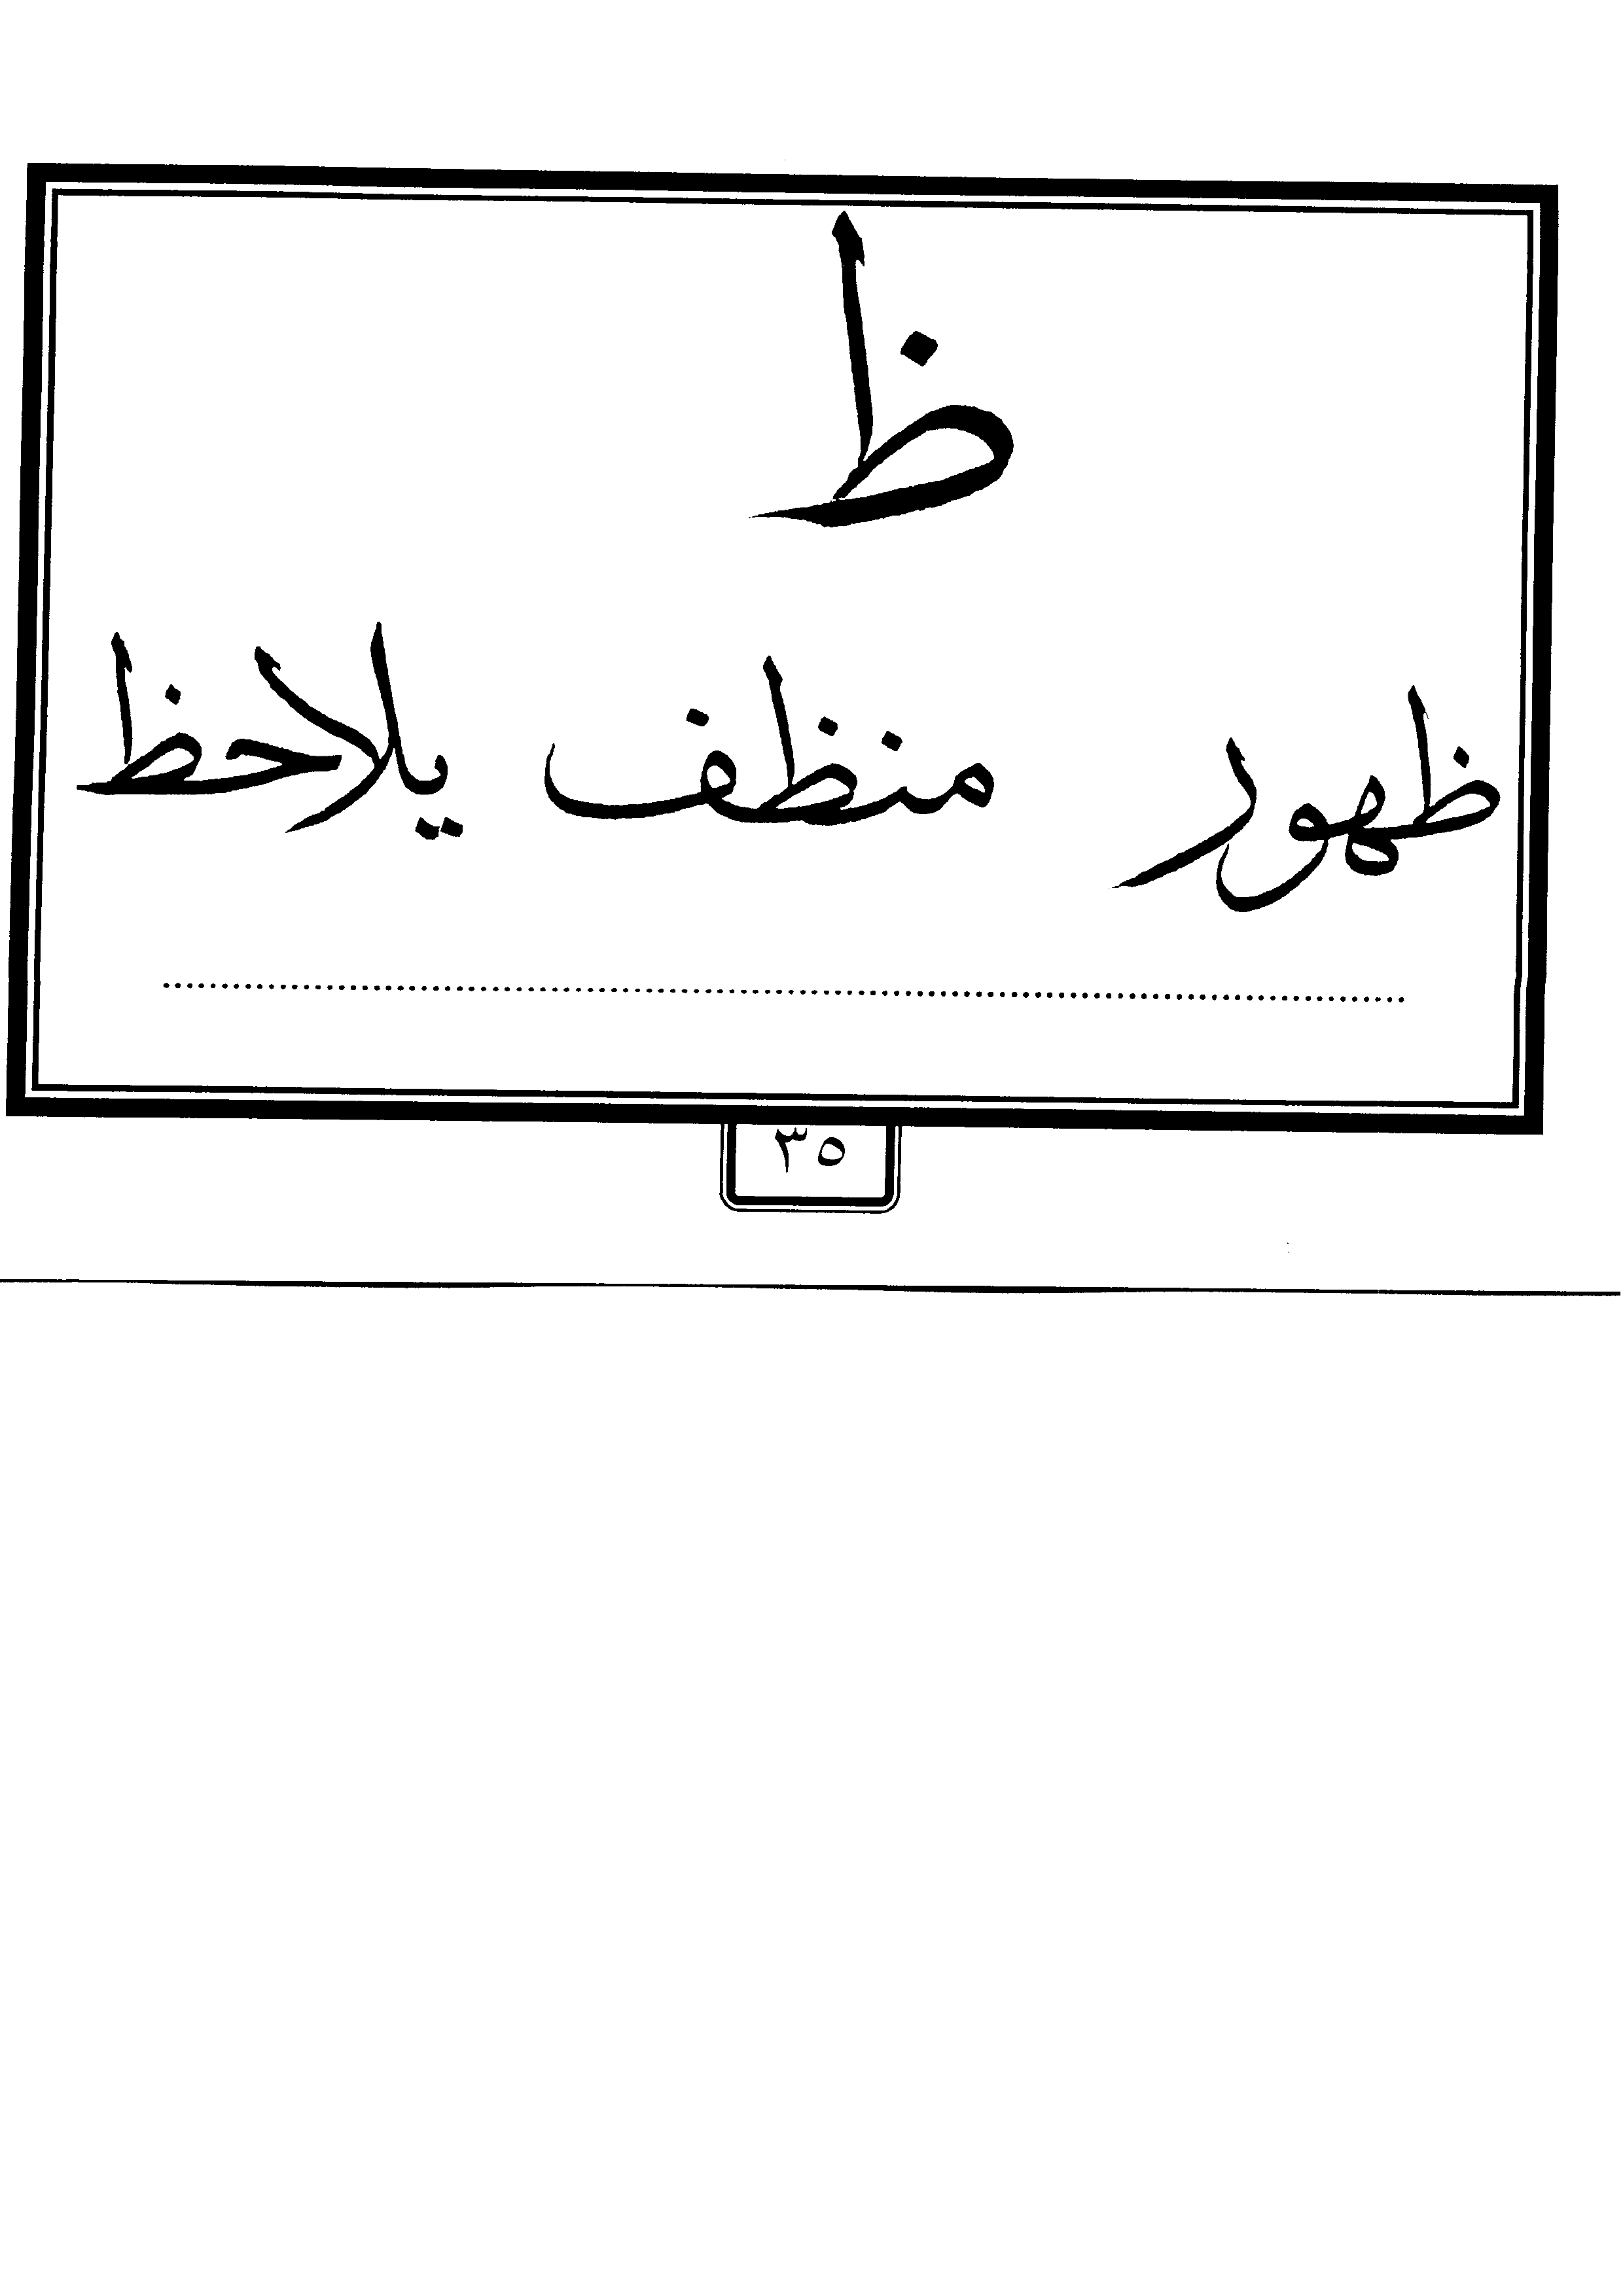 ظ
ظهور منظف يلاحظ
٣٥